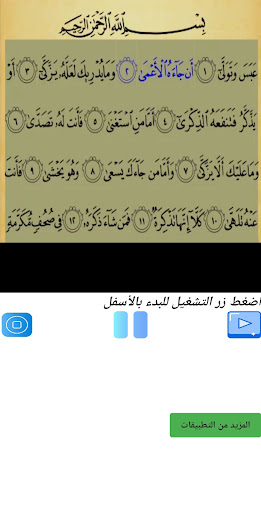 بِسْمِ اللَّهِ الرَّحْمَٰنِ الرَّحِيمِ
عَبَسَ وَتَوَلَّىٰٓ ١ أَن جَآءَهُ ٱلْأَعْمَىٰ ٢ وَمَا يُدْرِيكَ لَعَلَّهُۥ يَزَّكَّىٰٓ ٣ أَوْ
يَذَّكَّرُ فَتَنفَعَهُ ٱلذِّكْرَىٰٓ ٤ أَمَّا مَنِ ٱسْتَغْنَىٰ ٥ فَأَنتَ لَهُۥ تَصَدَّىٰ ٦
وَمَا عَلَيْكَ أَلَّا يَزَّكَّىٰ ٧ وَأَمَّا مَن جَآءَكَ يَسْعَىٰ ٨ وَهُوَ يَخْشَىٰ ٩ فَأَنتَ
عَنْهُ تَلَهَّىٰ ١٠ كَلَّآ إِنَّهَا تَذْكِرَةٌ ١١ فَمَن شَآءَ ذَكَرَهُۥ ١٢ فِى صُحُفٍ مُّكَرَّمَةٍ
اضغط زر التشغيل للبدء بالأسفل
المزيد من التطبيقات